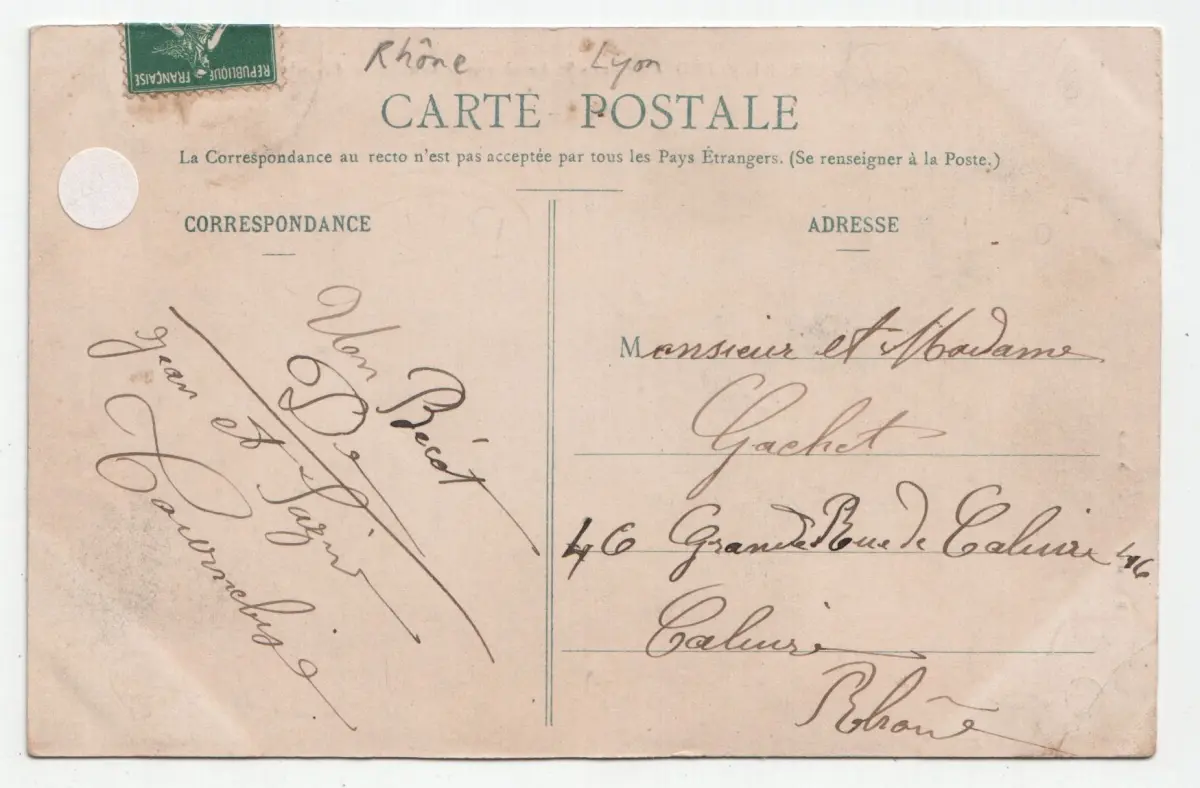 RÉPUBLIQUE FRANÇAISE
Rhône Lyon
CARTE POSTALE
La Correspondance au recto n'est pas acceptée par tous les Pays Étrangers. (Se renseigner à la Poste.)
CORRESPONDANCE
Bécot
De
jean et
ADRESSE
Monsieur et Madame
Gachet
46 Grande Rue de Caluire 46
Caluire
Rhône